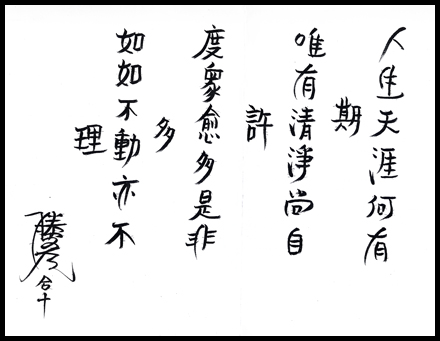 人生天涯何有
期
唯有清淨尚自
許
度眾愈多是非
多
如如不動亦不
理
合十